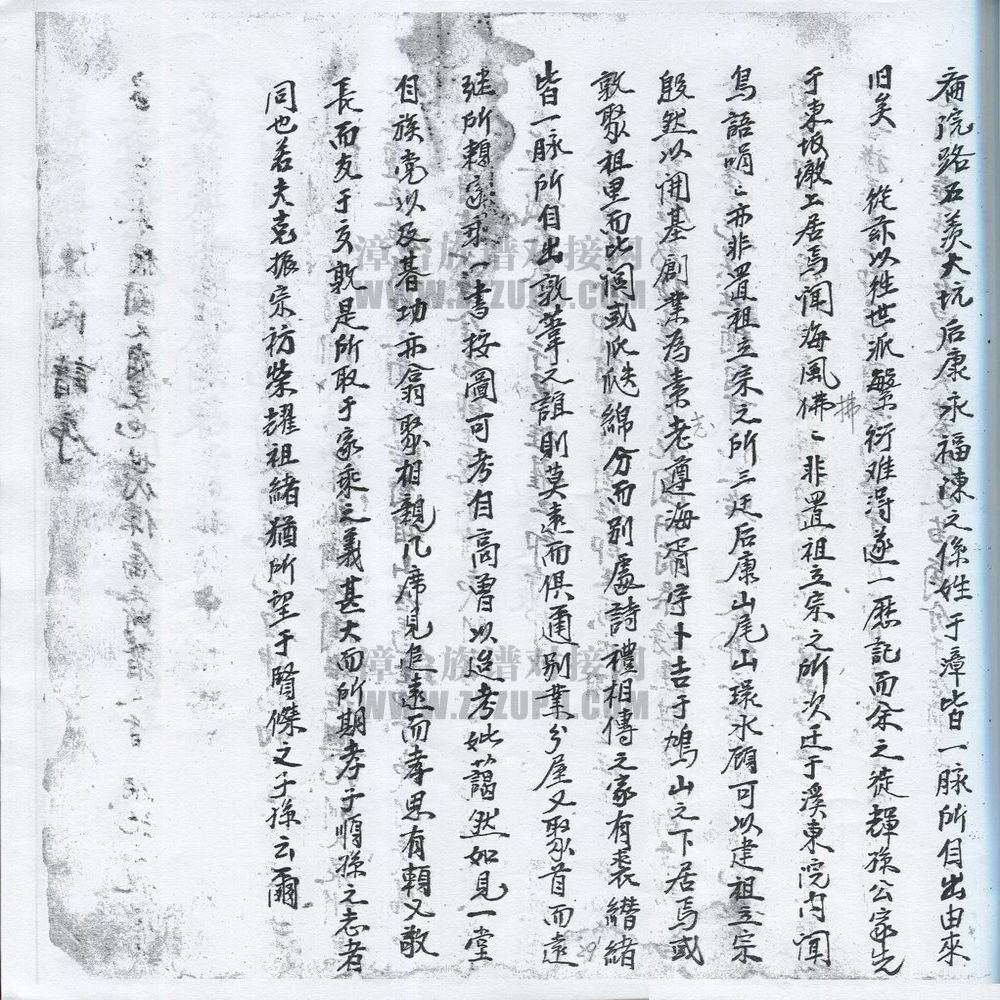 院路石美大坑后康永福凍之係姓于漳皆一脉所自出由來
旧矣 從茲以姓世派繁衍难淂逐一歷記而余之徙輝孫公家先
于東坂墩上居焉聞海風佛〻非置祖立宗之所次迁于溪東院内聞
拂
鳥語啃〻亦非置祖立宗之所三迁后康山尾山環水顧可以建祖立宗
殷然以開基創業為業老遵海滸侍卜吉于鳩山之下居焉或
敦聚祖里而比間或瓜瓞綿分而别處詩禮相傳之家有裘緒緒
皆一脉所自出敦葦之誼則莫遠而俱邇别業分屋又聚首而遠
継所頼家乘一書按圖可考自高曾以迨考妣藹然如見一堂
自族党以及碁功亦翕聚相親几席見追遠而孝思有賴又敬
長而友于亥敦是所取于家乘之義甚大而所期孝子順孫之志者
同也若夫克振宗祊榮耀祖緒猶所望于賢傑之子孫云爾
漳台族谱对接网
WWW.ZTZUPU.COM
漳台族谱对接网
WWW.ZTZUPU.COM